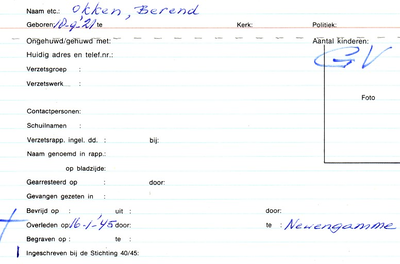 Naam etc.: Okken, Berend
Geboren: 10-9-'21 te Kerk: Politiek:
Ongehuwd/gehuwd met: Aantal kinderen:
Huidig adres en telef.nr.: GV
Verzetsgroep :
Verzetswerk :
Foto
Contactpersonen:
Schuilnamen :
Verzetsrapp. ingel. dd. : bij:
Naam genoemd in rapp.:
op bladzijde:
Gearresteerd op : door:
Gevangen gezeten in :
Bevrijd op : uit : door:
Overleden op: 16-1-'45 door: te : Neuengamme
Begraven op : te :
Ingeschreven bij de Stichting 40/45: